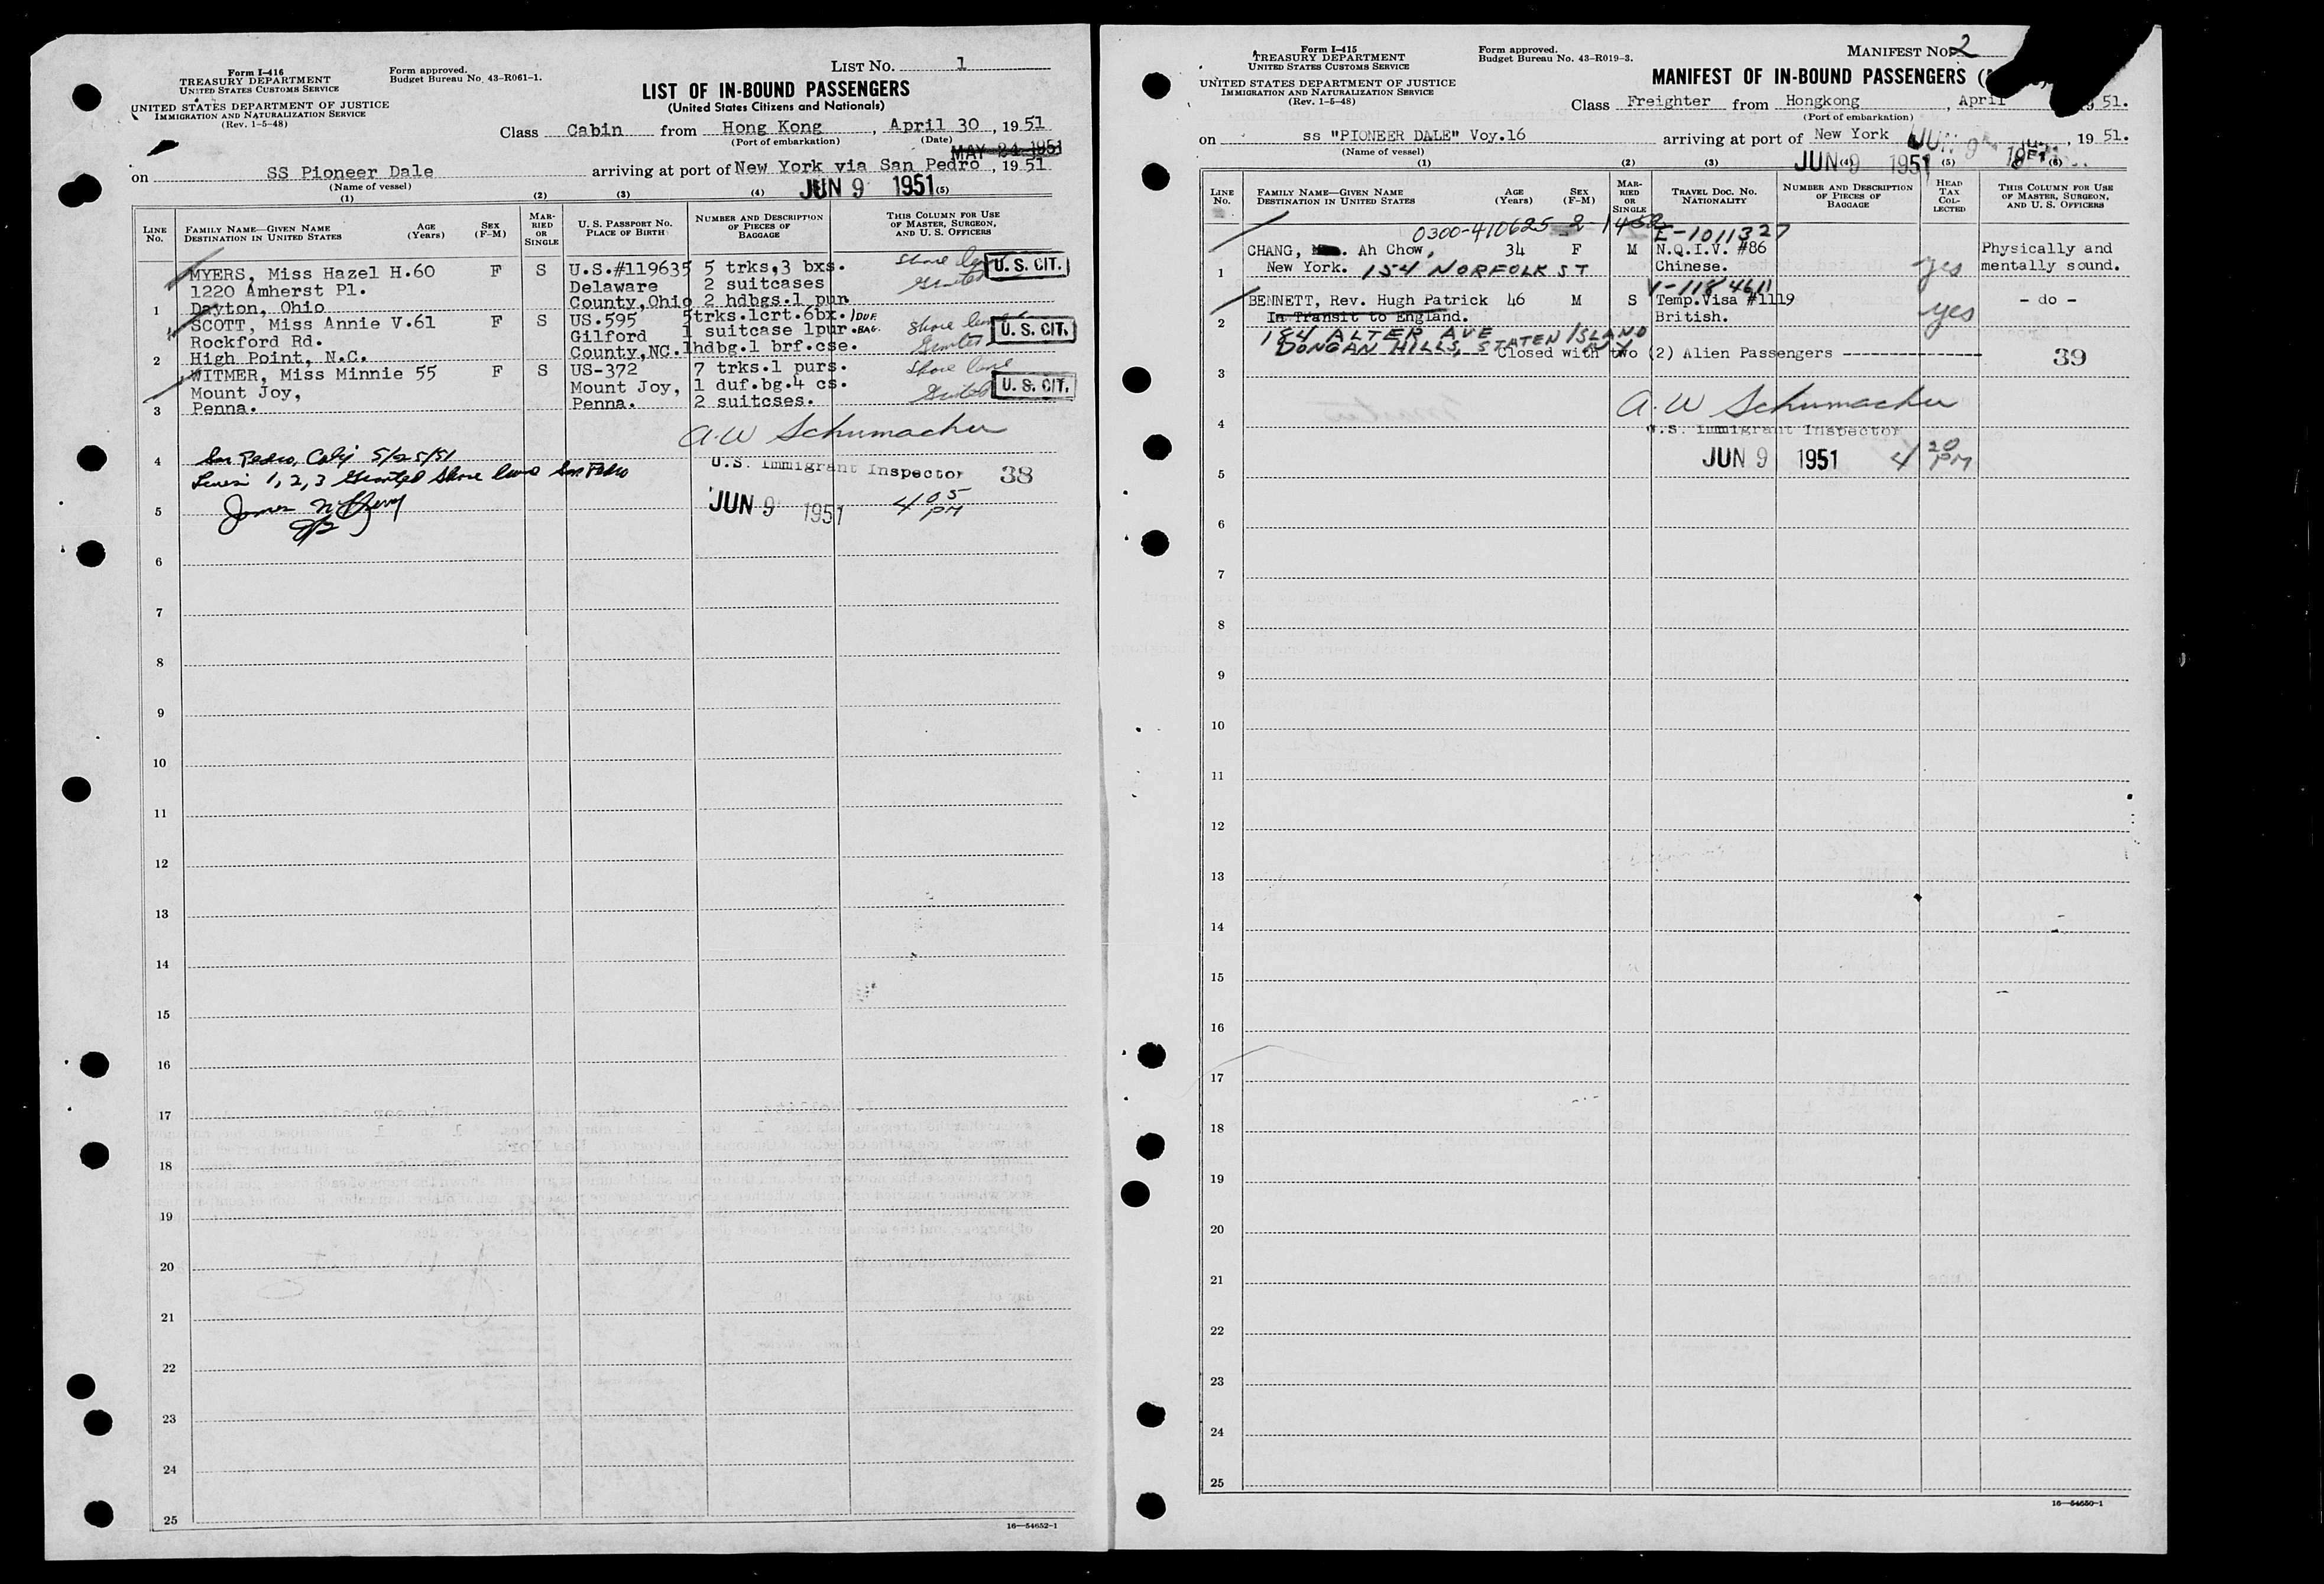 Form I-416
TREASURY DEPARTMENT
UNITED STATES CUSTOMS SERVICE
UNITED STATES DEPARTMENT OF JUSTICE
IMMIGRATION AND NATURALIZATION SERVICE
(Rev. 1-5-48)
Form approved.
Budget Bureau No. 43-R061-1.
LIST NO. 1
LIST OF IN-BOUND PASSENGERS
(United States Citizens and Nationals)
Class Cabin from Hong Kong, April 30, 1951
(Port of embarkation) (Date)
MAY 24 1951
on SS Pioneer Dale arriving at port of New York via San Pedro, 1951
(Name of vessel)
JUN 9 1951
(1) (2) (3) (4) (5)
LINE NO. FAMILY NAME—GIVEN NAME DESTINATION IN UNITED STATES AGE (Years) SEX (F-M) MARRIED OR SINGLE U. S. PASSPORT NO. PLACE OF BIRTH NUMBER AND DESCRIPTION OF PIECES OF BAGGAGE THIS COLUMN FOR USE OF MASTER, SURGEON, AND U. S. OFFICERS
MYERS, Miss Hazel H. 60 F S U.S.#119635 5 trks,3 bxs. Shore leave U. S. CIT.
1220 Amherst Pl. Delaware 2 suitcases Granted
1 Dayton, Ohio County,Ohio 2 hdbgs.1 pur.
SCOTT, Miss Annie V. 61 F S US.595 5trks.1crt.6bx. 1 DUF. BAG. Shore leave U. S. CIT.
Rockford Rd. Gilford 1 suitcase 1pur. Granted
2 High Point, N.C. County,NC. 1hdbg.1 brf.cse.
WITMER, Miss Minnie 55 F S US-372 7 trks.1 purs. Shore leave
Mount Joy, Mount Joy, 1 duf.bg.4 cs. Granted U. S. CIT.
3 Penna. Penna. 2 suitcses.
A.W Schumacher
4 San Pedro, Calif 5/25/51
U.S. Immigrant Inspector 38
Lines 1, 2, 3 Granted Shore leave San Pedro
JUN 9 1951 4 05 PM
5
6
7
8
9
10
11
12
13
14
15
16
17
18
19
20
21
22
23
24
25
16—54652-1
Form I-415
TREASURY DEPARTMENT
UNITED STATES CUSTOMS SERVICE
UNITED STATES DEPARTMENT OF JUSTICE
IMMIGRATION AND NATURALIZATION SERVICE
(Rev. 1-5-48)
Form approved.
Budget Bureau No. 43-R019-3.
MANIFEST NO. 2
MANIFEST OF IN-BOUND PASSENGERS
Class Freighter from Hongkong, April 1951.
(Port of embarkation)
on ss "PIONEER DALE" Voy.16 arriving at port of New York, 1951.
(Name of vessel)
JUN 9 1951
(1) (2) (3) (4) (5) (6)
LINE NO. FAMILY NAME—GIVEN NAME DESTINATION IN UNITED STATES AGE (Years) SEX (F-M) MARRIED OR SINGLE TRAVEL DOC. NO. NATIONALITY NUMBER AND DESCRIPTION OF PIECES OF BAGGAGE HEAD TAX COLLECTED THIS COLUMN FOR USE OF MASTER, SURGEON, AND U. S. OFFICERS
0300-410625 E-1011327
CHANG, Ah Chow, 34 F M N.Q.I.V. #86 Physically and
1 New York. 154 NORFOLK ST Chinese. yes mentally sound.
V-1184611
BENNETT, Rev. Hugh Patrick 46 M S Temp.Visa #1119 - do -
2 In Transit to England. British. yes
184 ALTER AVE
DONGAN HILLS, STATEN ISLAND NY
Closed with two (2) Alien Passengers 39
3
A.W Schumacher
4
U.S. Immigrant Inspector
JUN 9 1951 4 20 PM
5
6
7
8
9
10
11
12
13
14
15
16
17
18
19
20
21
22
23
24
25
16—54650-1